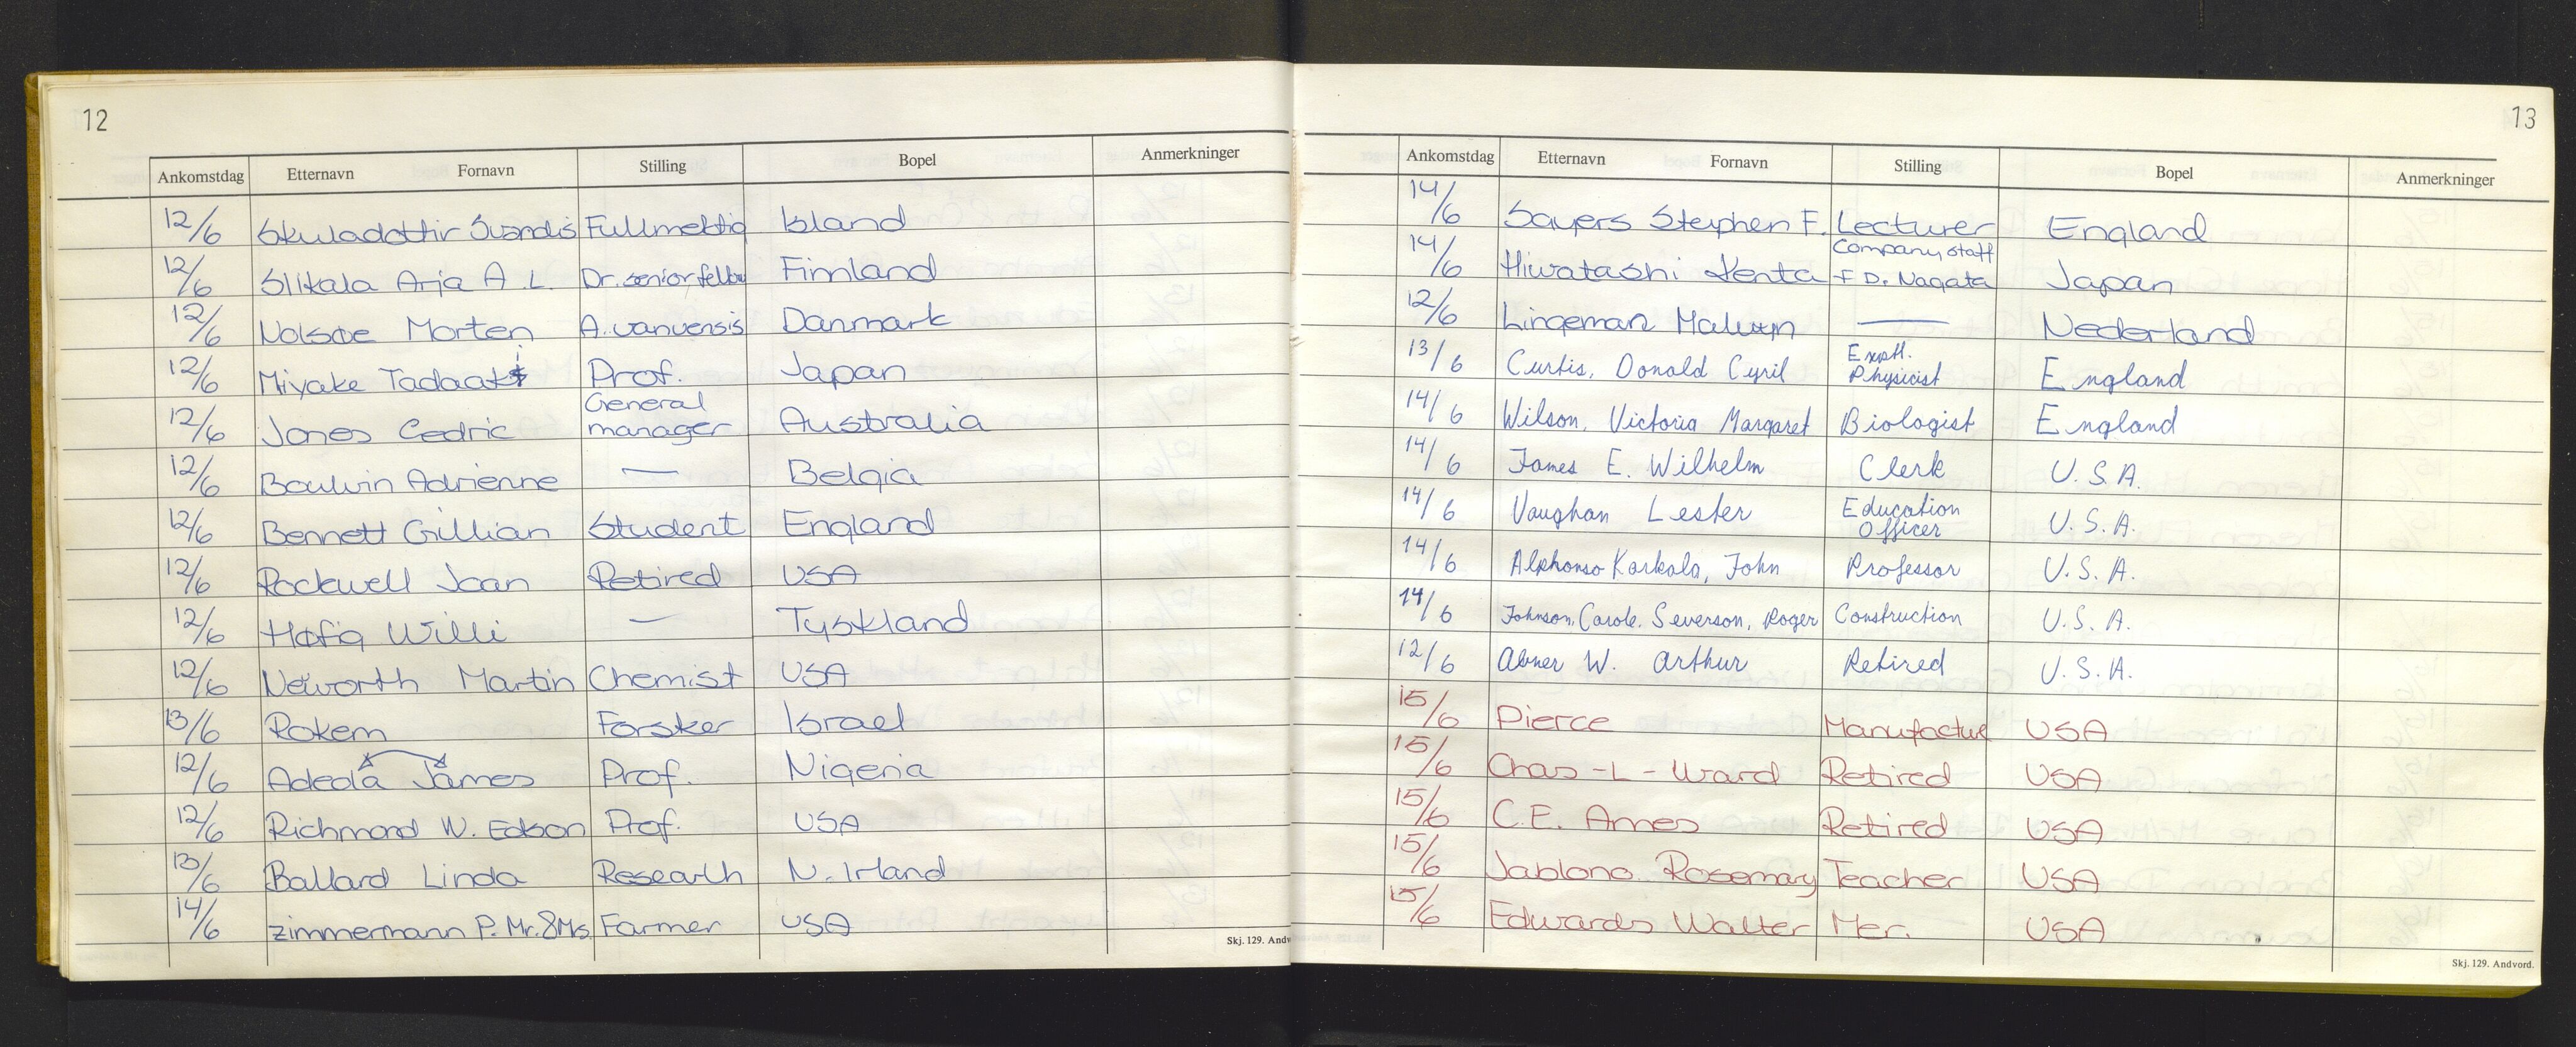 12
Ankomstdag Etternavn Fornavn Stilling Bopel Anmerkninger
12/6 Skuladottir Svandis Fullmektig Island
12/6 Slikala Arja A. L. Dr. senior fellow Finnland
12/6 Nolsøe Morten A. vanvensis Danmark
12/6 Miyake Tadaaki Prof. Japan
12/6 Jones Cedric General manager Australia
12/6 Boulvin Adrienne — Belgia
12/6 Bennett Gillian Student England
12/6 Rockwell Joan Retired USA
12/6 Höfig Willi — Tyskland
12/6 Neworth Martin Chemist USA
13/6 Rokem Forsker Israel
12/6 Adeola James Prof. Nigeria
12/6 Richmond W. Edson Prof. USA
13/6 Ballard Linda Research N. Irland
14/6 Zimmermann P. Mr. & Ms. Farmer USA
Skj. 129. Andv
13
Ankomstdag Etternavn Fornavn Stilling Bopel Anmerkninger
14/6 Sayers Stephen F. Lecturer England
14/6 Hiwatashi Kenta Company staff F D. Nagata Japan
12/6 Lingeman Malwyn — Nederland
13/6 Curtis, Donald Cyril Exptl. Physicist England
14/6 Wilson, Victoria Margaret Biologist England
14/6 James E. Wilhelm Clerk U.S.A.
14/6 Vaughan Lester Education Officer U.S.A.
14/6 Alphonso Karkala, John Professor U.S.A.
14/6 Johnson, Carole. Severson, Roger Construction U.S.A.
12/6 Abner W. Arthur Retired U.S.A.
15/6 Pierce Manufactur USA
15/6 Chas - L - Ward Retired USA
15/6 C.E. Ames Retired USA
15/6 Jablono Rosemary Teacher USA
15/6 Edwards Walter Mer. USA
Skj. 129. Andvord.